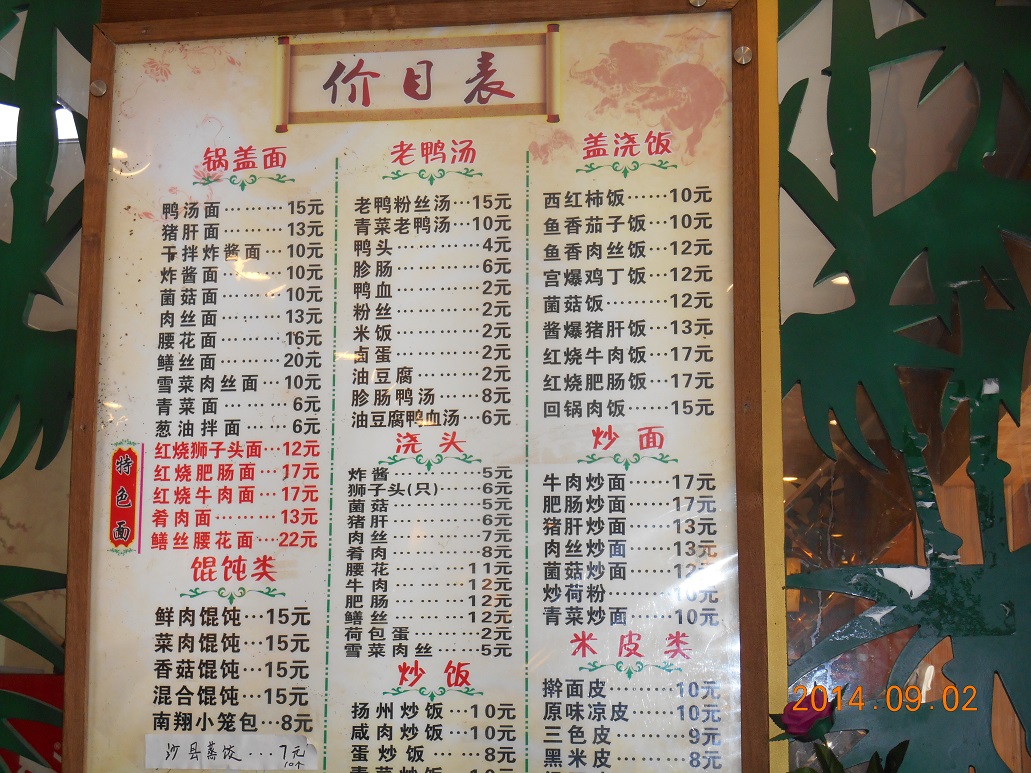 价目表
锅盖面
鸭汤面………15元
猪肝面………13元
干拌炸酱面…10元
炸酱面………10元
菌菇面………10元
肉丝面………13元
腰花面………16元
鳝丝面………20元
雪菜肉丝面…10元
青菜面………6元
葱油拌面……6元
特色面
红烧狮子头面…12元
红烧肥肠面…17元
红烧牛肉面…17元
肴肉面………13元
鳝丝腰花面…22元
馄饨类
鲜肉馄饨…15元
菜肉馄饨…15元
香菇馄饨…15元
混合馄饨…15元
南翔小笼包…8元
沙县蒸饺...7元
10个
老鸭汤
老鸭粉丝汤…15元
青菜老鸭汤…10元
鸭头…………4元
胗肠…………6元
鸭血…………2元
粉丝…………2元
米饭…………2元
卤蛋…………2元
油豆腐………2元
胗肠鸭汤……8元
油豆腐鸭血汤…6元
浇头
炸酱…………5元
狮子头(只)……6元
菌菇…………5元
猪肝…………6元
肉丝…………7元
肴肉…………8元
腰花…………11元
牛肉…………12元
肥肠…………12元
鳝丝…………12元
荷包蛋………2元
雪菜肉丝……5元
炒饭
扬州炒饭…10元
咸肉炒饭…10元
蛋炒饭……8元
青菜炒饭…10元
盖浇饭
西红柿饭…10元
鱼香茄子饭…10元
鱼香肉丝饭…12元
宫爆鸡丁饭…12元
菌菇饭………12元
酱爆猪肝饭…13元
红烧牛肉饭…17元
红烧肥肠饭…17元
回锅肉饭……15元
炒面
牛肉炒面……17元
肥肠炒面……17元
猪肝炒面……13元
肉丝炒面……13元
菌菇炒面……12元
炒荷粉………10元
青菜炒面……10元
米皮类
擀面皮………10元
原味凉皮……10元
三色皮………9元
黑米皮………8元
2014.09.02